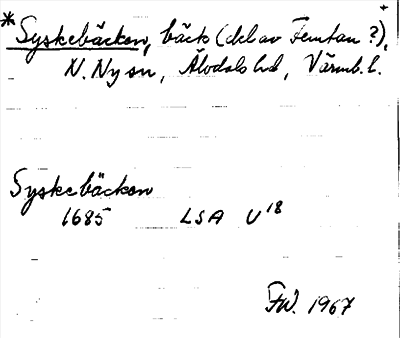 *Syskebäcken, bäck (del av Femtan ?),
N. Ny sn, Älvdals hd, Värml. l.
Syskebäcken
1685 LSA U18
FW. 1967